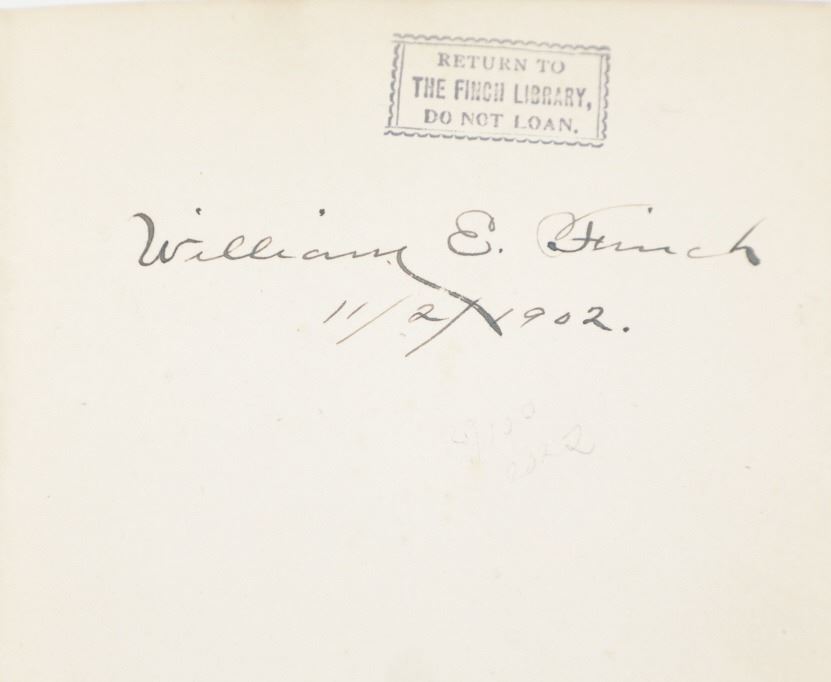 RETURN TO
THE FINCH LIBRARY,
DO NOT LOAN.
William E. Finch
11/2/1902.